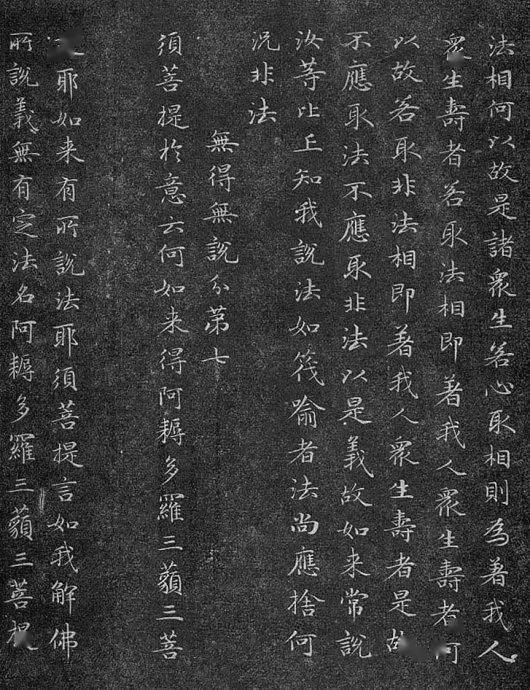 法相何以故是諸衆生若心取相則為著我人
衆生壽者若取法相即著我人衆生壽者何
以故若取非法相即著我人衆生壽者是故
不應取法不應取非法以是義故如来常說
汝等比丘知我說法如筏喻者法尚應捨何
況非法
無得無說分第七
須菩提於意云何如来得阿耨多羅三藐三菩
耶如来有所說法耶須菩提言如我解佛
所說義無有定法名阿耨多羅三藐三菩提